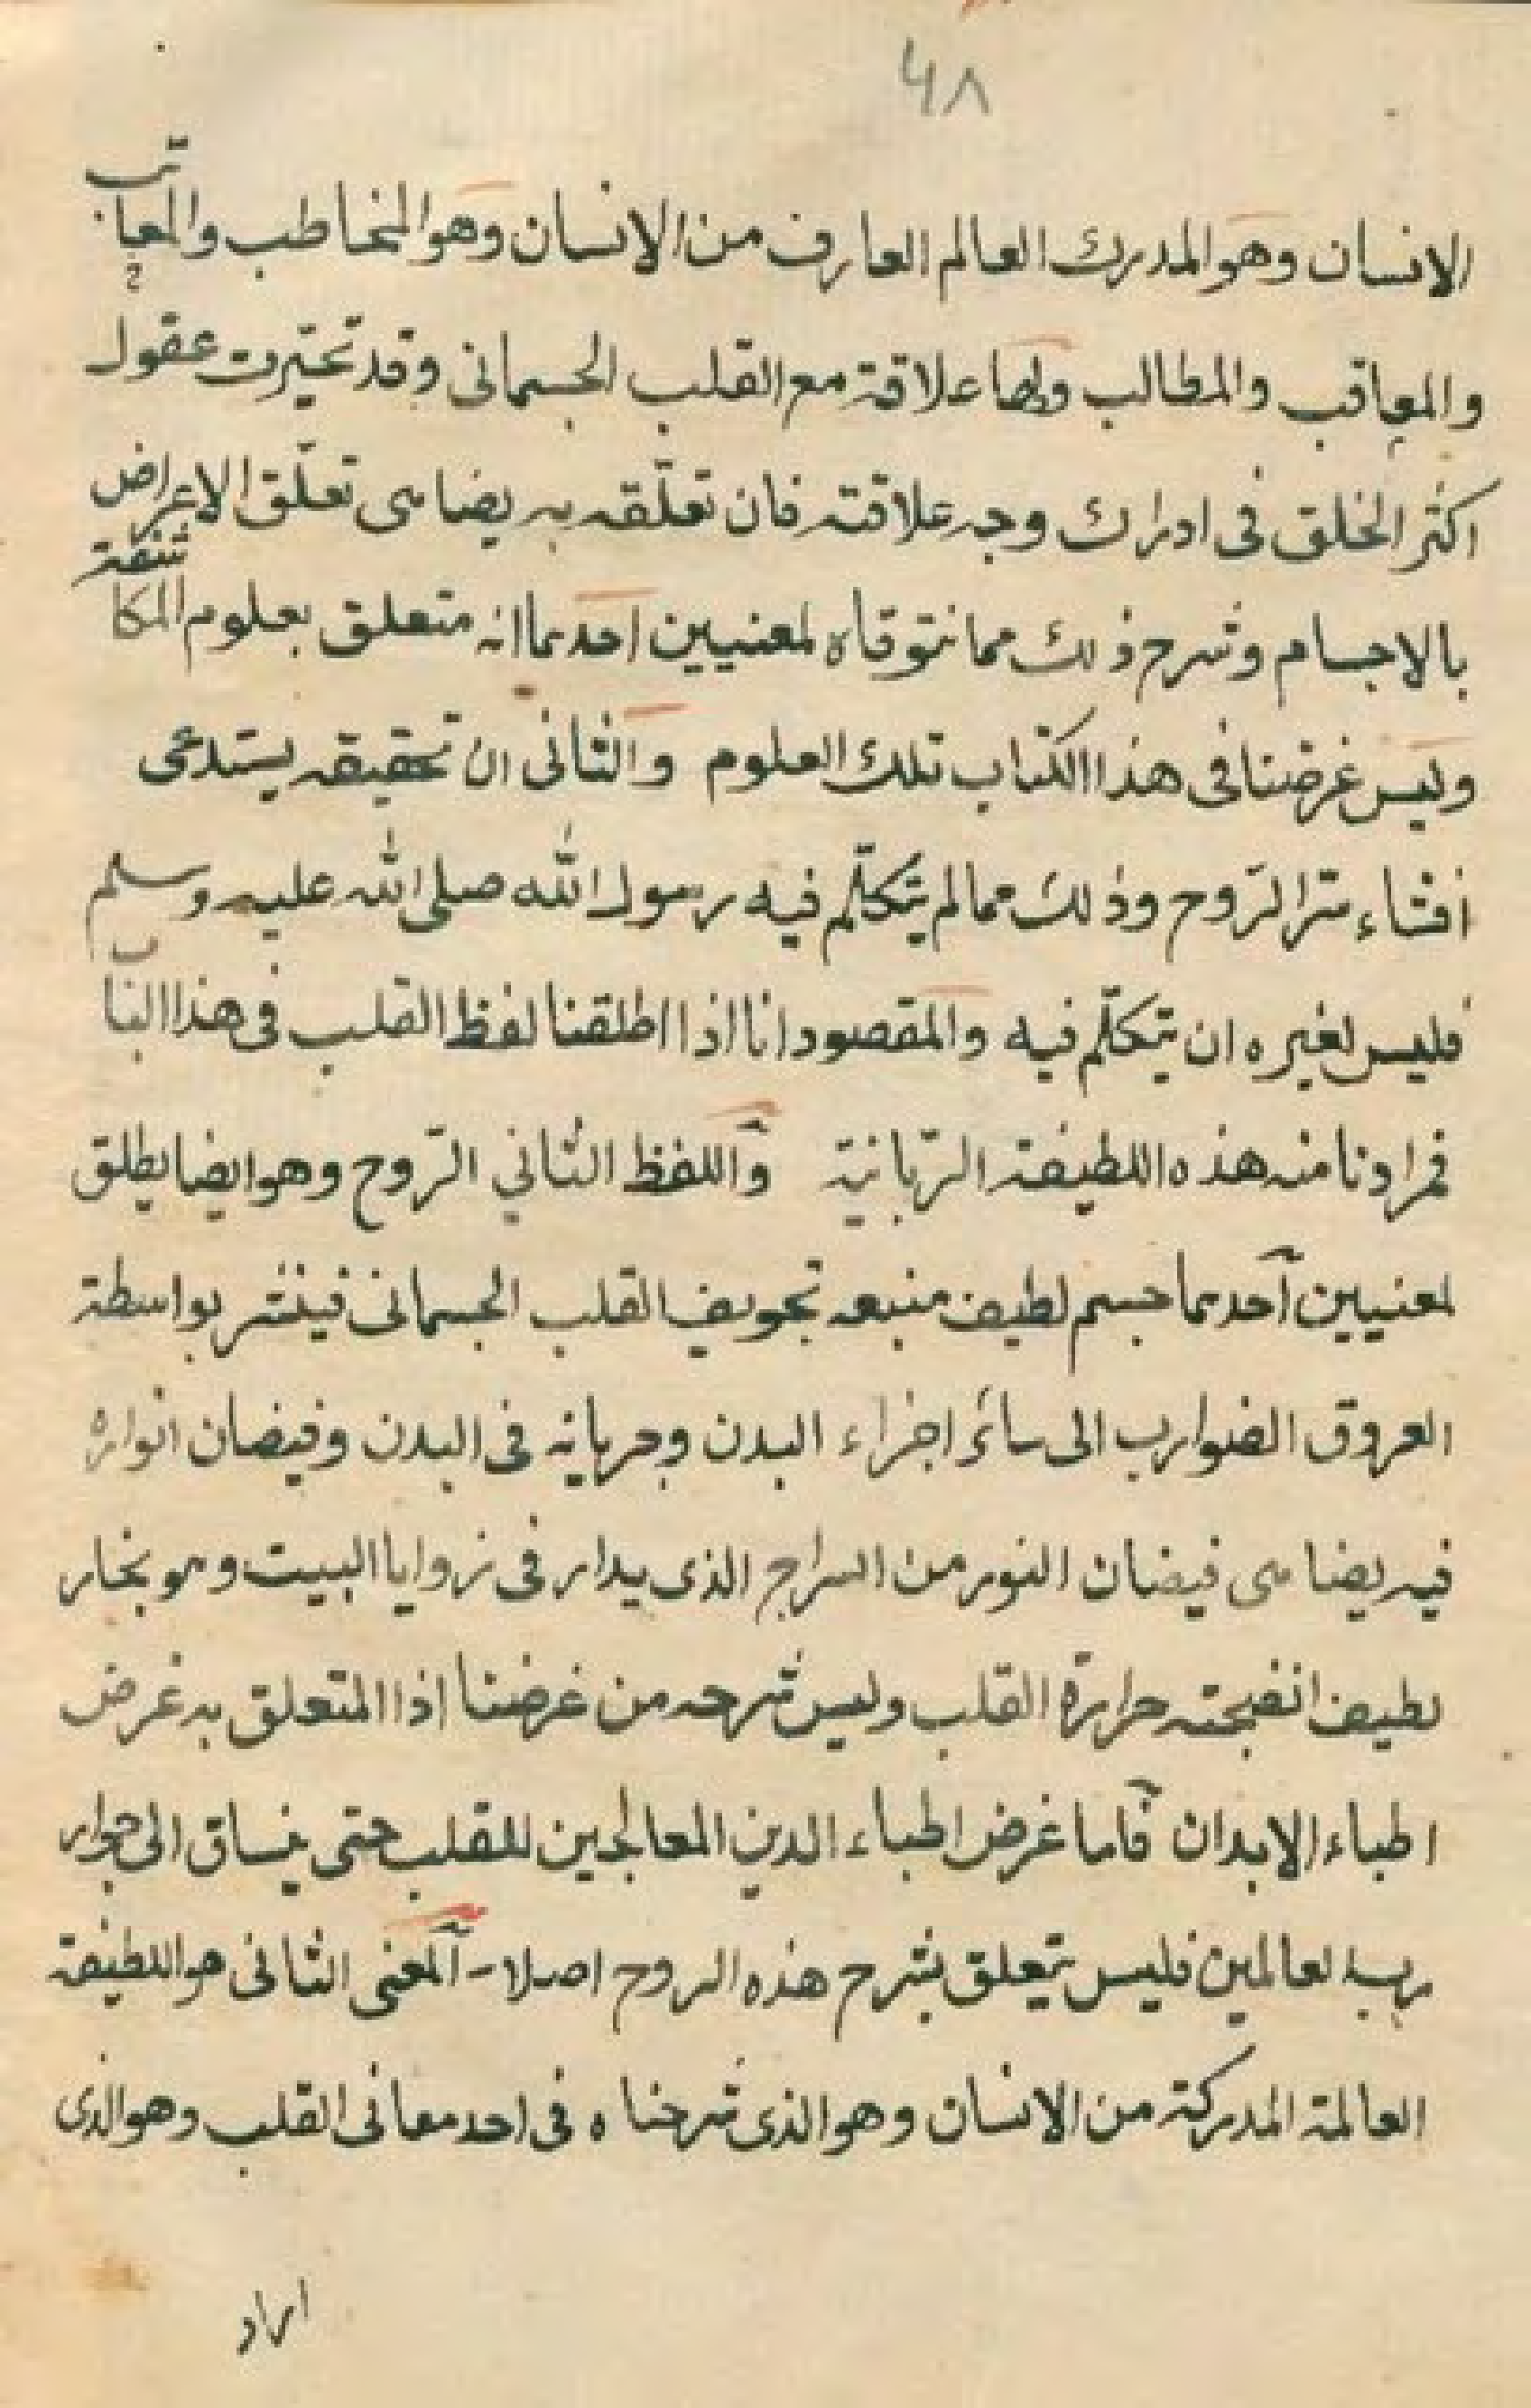 ٤٨
الانسان وهو المدرك العالم العارف من الانسان وهو المخاطب والمعاتب
والمعاقب والمطالب ولها علاقة مع القلب الجسمانى وقد تحيّرت عقول
اكثر الخلق فى ادراك وجه علاقته فان تعلّقه به يضاهى تعلّق الاعراض
بالاجسام وشرح ذلك مما نتوقاه لمعنيين احدهما انه متعلق بعلوم المكاشفة
وليس غرضنا فى هذا الكتاب تلك العلوم والثانى ان تحقيقه يستدعى
افشاء سّر الرّوح وذلك ممالم يتكلّم فيه رسول الله صلى الله عليه وسلم
فليس لغيره ان يتكلّم فيه والمقصود انا اذا اطلقنا لفظ القلب فى هذا الباب
فمرادنا منه هذه اللطيفة الرّبانيّة وآللفظ الثاني الرّوح وهو ايضا يطلق
لمعنيين آحدهما جسم لطيف منبعه تجويف القلب الجسمانى فينتشر بواسطة
العروق الضوارب الى سائر اجزاء البدن وجريانه فى البدن وفيضان انواره
فيه يضاهى فيضان النور من السراج الذى يدار فى زوايا البيت وهو بخار
لطيف انضجته حرارة القلب وليس شرحه من غرضنا اذا المتعلق به غرض
اطباء الابدان فآما غرض اطباء الدين المعالجين للقلب حتى ينساق الى جوار
رب العالمين فليس يتعلق بشرح هذه الروح اصلا - آلمعنى الثانى هو اللطيفة
العالمة المدركة من الانسان وهو الذى شرحناه فى احد معانى القلب وهو الذى
اراد